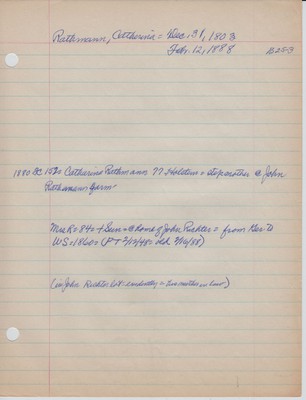 Rathmann, Catherina = Dec. 31, 1803
Feb. 12, 1888
1880 SC Catharina Rathmann 77 Holstein = stepmother @ John
Rathmann farm
Mrs R = 84 = + Sun = @ home of John Richter = from Ger to
WS = 1860 = (PT 2/17/48 = dld 2/16/88)
(in John Richter lot: evidently = his mother in law)